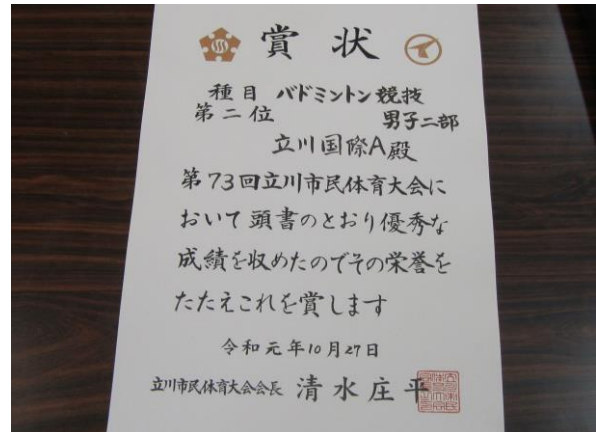 賞状
種目 バドミントン競技
第二位 男子二部
立川国際A殿
第73回立川市民体育大会に
おいて頭書のとおり優秀な
成績を収めたのでその栄誉を
たたえこれを賞します
令和元年10月27日
立川市民体育大会会長 清水庄平